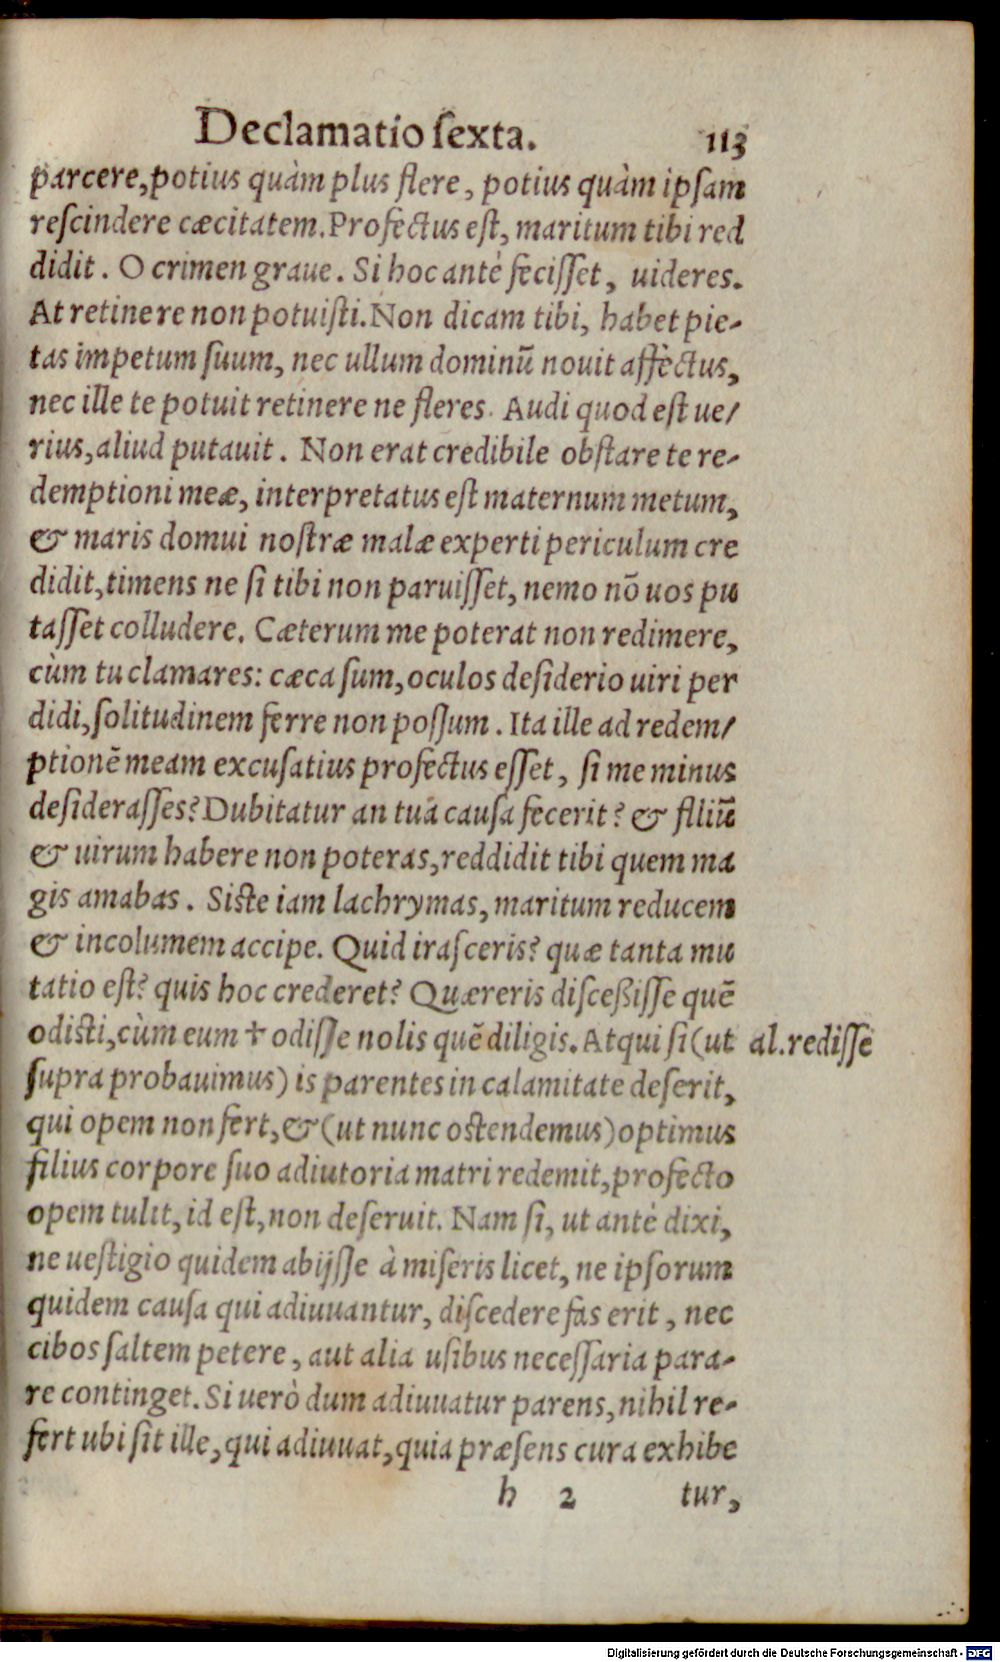 Declamatio ſexta. 113
parcere, potius quàm plus flere, potius quàm ipſam
reſcindere cæcitatem. Profectus eſt, maritum tibi red
didit. O crimen graue. Si hoc antè feciſſet, uideres.
At retinere non potuiſti. Non dicam tibi, habet pie-
tas impetum ſuum, nec ullum dominũ nouit affectus,
nec ille te potuit retinere ne fleres. Audi quod eſt ue/
rius, aliud putauit. Non erat credibile obſtare te re-
demptioni meæ, interpretatus eſt maternum metum,
& maris domui noſtræ malæ experti periculum cre
didit, timens ne ſi tibi non paruiſſet, nemo nõ uos pu
taſſet colludere. Cæterum me poterat non redimere,
cùm tu clamares: cæca ſum, oculos deſiderio uiri per
didi, ſolitudinem ferre non poſſum. Ita ille ad redem/
ptionẽ meam excuſatius profectus eſſet, ſi me minus
deſideraſſes? Dubitatur an tua cauſa fecerit? & filiũ
& uirum habere non poteras, reddidit tibi quem ma
gis amabas. Siſte iam lachrymas, maritum reducem
& incolumem accipe. Quid iraſceris? quæ tanta mu
tatio eſt? quis hoc crederet? Quæreris diſceßiſſe quẽ
odiſti, cùm eum + odiſſe nolis quẽ diligis. Atqui ſi (ut al. rediſſe
ſupra probauimus) is parentes in calamitate deſerit,
qui opem non fert, & (ut nunc oſtendemus) optimus
filius corpore ſuo adiutoria matri redemit, profecto
opem tulit, id eſt, non deſeruit. Nam ſi, ut antè dixi,
ne ueſtigio quidem abijſſe à miſeris licet, ne ipſorum
quidem cauſa qui adiuuantur, diſcedere fas erit, nec
cibos ſaltem petere, aut alia uſibus neceſſaria para-
re continget. Si uerò dum adiuuatur parens, nihil re-
fert ubi ſit ille, qui adiuuat, quia præſens cura exhibe
h 2 tur,
Digitalisierung gefördert durch die Deutsche Forschungsgemeinschaft - DFG